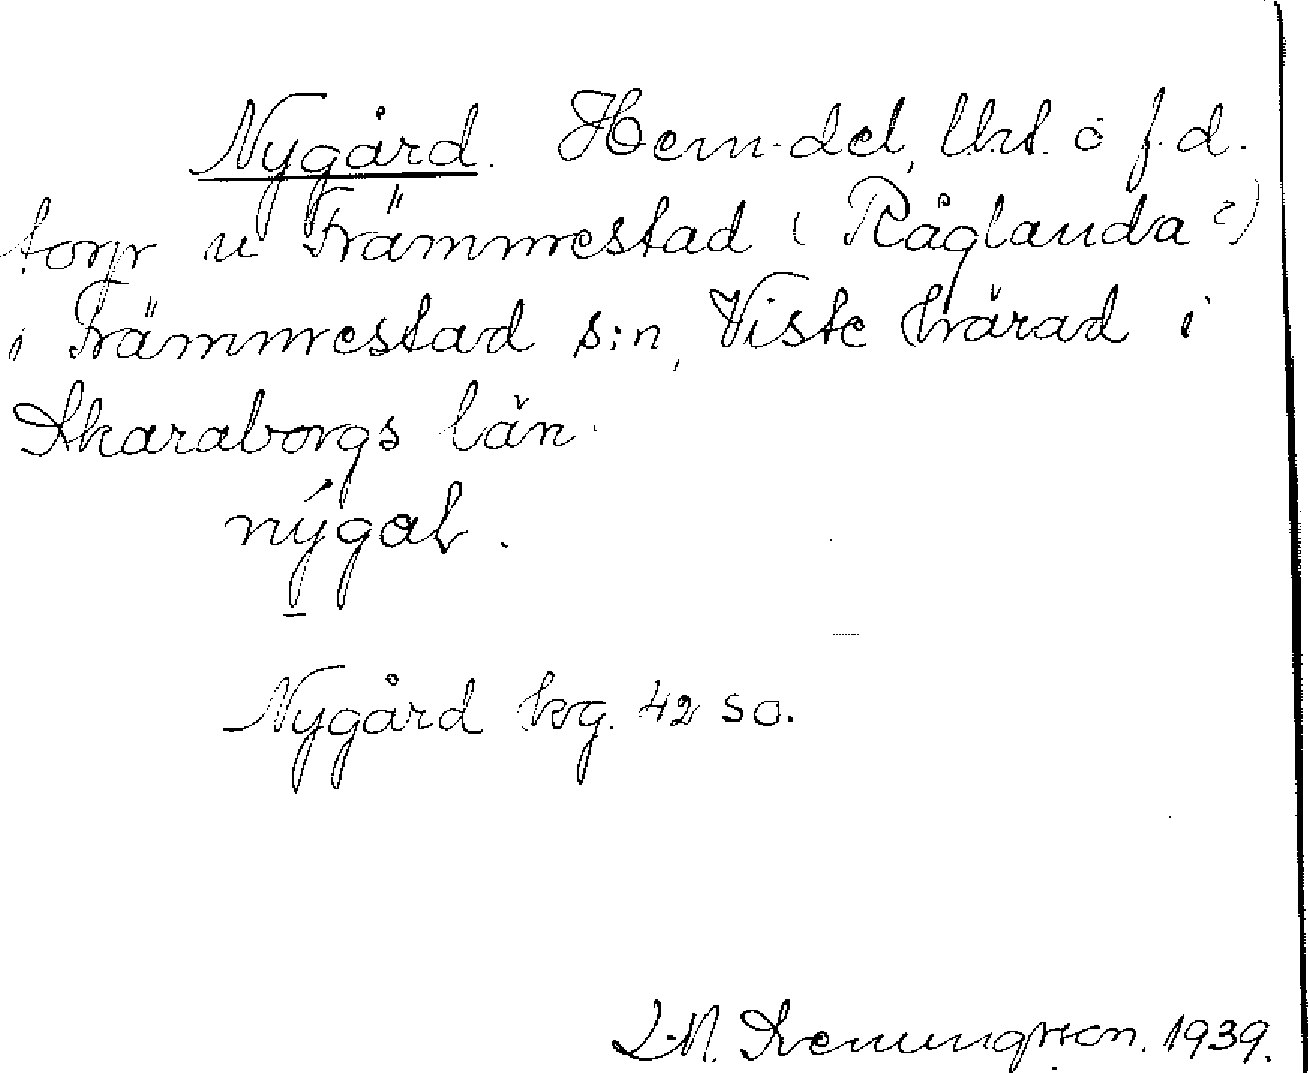 Nygård. Hem.del, lht. o f.d.
torp u Främmestad (Råglanda )
i Främmestad s:n, Viste härad i
Skaraborgs län.
nýgaḷ.
Nygård kvg. 42 so.
1939.